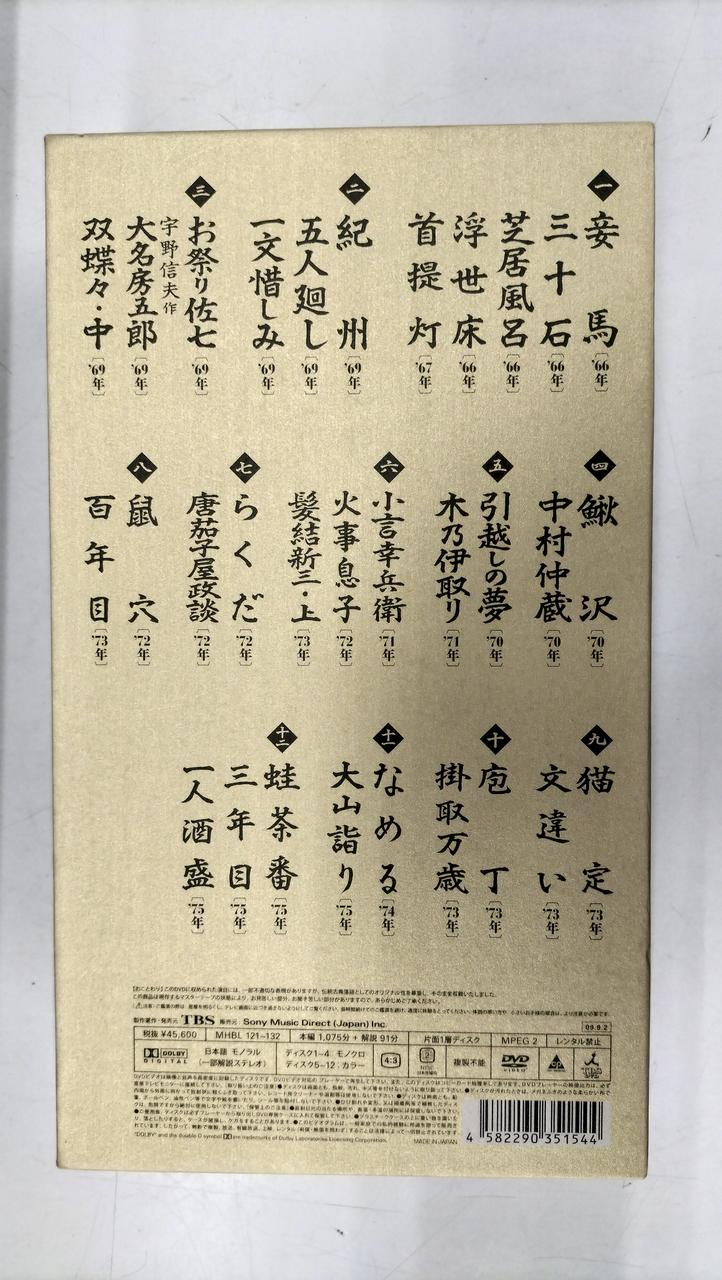 一
妾馬['66年]
三十石['66年]
芝居風呂['66年]
浮世床['66年]
首提灯['67年]
二
紀州['69年]
五人廻し['69年]
一文惜しみ['69年]
三
お祭り佐七['69年]
宇野信夫作
大名房五郎['69年]
双蝶々・中['69年]
四
鰍沢['70年]
中村仲蔵['70年]
五
引越しの夢['70年]
木乃伊取り['71年]
六
小言幸兵衛['71年]
火事息子['72年]
髪結新三・上['73年]
七
らくだ['72年]
唐茄子屋政談['72年]
八
鼠穴['72年]
百年目['73年]
九
猫定['73年]
文違い['73年]
十
庖丁['73年]
掛取万歳['73年]
十一
なめる['74年]
大山詣り['75年]
十二
蛙茶番['75年]
三年目['75年]
一人酒盛['75年]
【おことわり】このDVDに収められた演目には、一部不適切な表現がありますが、伝統古典落語としてのオリジナル性を尊重し、そのまま収録いたしました。
製作著作・発売元 TBS 販売元 Sony Music Direct (Japan) Inc. 09.9.2
税抜 ¥45,600 MHBL 121~132 本編 1,075分+解説 91分 片面1層ディスク MPEG 2 レンタル禁止
DOLBY DIGITAL 日本語 モノラル (一部解説ステレオ) ディスク1~4:モノクロ ディスク5~12:カラー 4:3 2 NTSC 複製不能 DVD VIDEO
"DOLBY" and the double D symbol are trademarks of Dolby Laboratories Licensing Corporation. MADE IN JAPAN
4 582290 351544